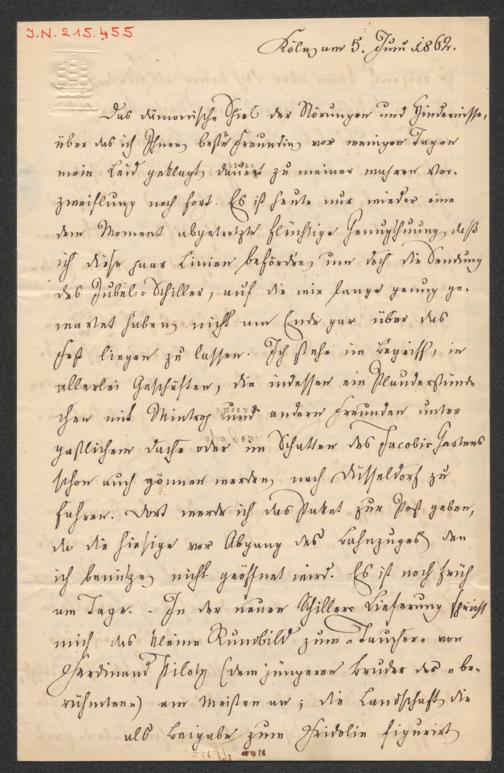 J.N. 215.455
Köln, am 5. Juni 1862.
Das dämonische Spiel der Störungen und Hindernisse,
über das ich Ihnen, beste Freundin, vor wenigen Tagen
mein Leid geklagt, dauert zu meiner wahren Ver-
zweiflung noch fort. Es ist heute nur wieder eine
dem Moment abgetrotzte flüchtige Genugthuung, daß
ich diese paar Linien befördre, um doch die Sendung
des Jubel-Schiller, auf die wir lange genug ge-
wartet haben, nicht am Ende gar über das
Fest liegen zu lassen. Ich stehe im Begriff, in
allerlei Geschäften, die indessen ein Plauderstünd-
chen mit Wintrop und andern Freunden unter
gastlichem Dache oder im Schatten des Jacobi-Gartens
schon auch gönnen werden, nach Düsseldorf zu
fahren. Dort werde ich das Paket zur Post geben,
da die hiesige vor Abgang des Bahnzuges, den
ich benütze, nicht geöffnet wird. Es ist noch früh
am Tage. - In der neuen Schiller-Lieferung spricht
mich das kleine Rundbild zum "Taucher" von
Ferdinand Piloty (dem jüngeren Bruder des "be-
rühmten") am Meisten an; die Landschaft, die
als Beigabe zum Fridolin figurirt,